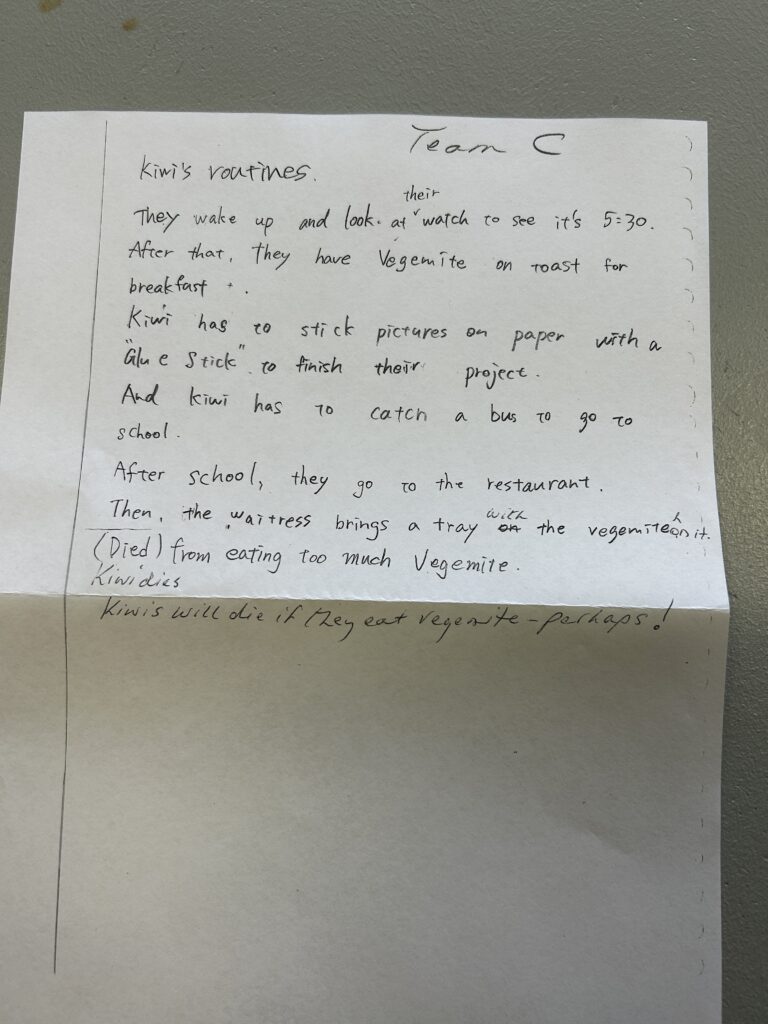 Team C
Kiwi's routines.
their
They wake up and look. at watch to see it's 5:30.
After that, they have Vegemite on toast for
breakfast.
Kiwi has to stick pictures on paper with a
"Glue Stick" to finish their project.
And kiwi has to catch a bus to go to
school.
After school, they go to the restaurant.
with
Then, the waitress brings a tray on the vegemite on it.
(Died) from eating too much Vegemite.
Kiwi dies
Kiwis will die if they eat vegemite - perhaps!